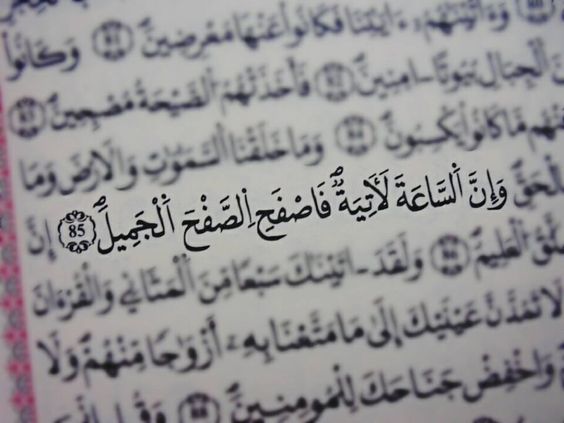 وَءَاتَيْنَٰهُمُۥٓ ءَايَٰتِنَا فَكَانُواْ عَنْهَا مُعْرِضِينَ وَكَانُواْ
اَلْجِبَالِ بُيُوتاً ـ اٰمِنِينَ فَأَخَذَتْهُمُ اُلصَّيْحَةُ مُصْبِحِينَ
مَّا كَانُواْ يَكْسِبُونَ وَمَا خَلَقْنَا اَلسَّمَٰوَٰتِ وَالَارْضَ وَمَا
اَلْحَقِّ وَإِنَّ اَلسَّاعَةَ لَأٓتِيَةٌ فَاصْفَحِ اِلصَّفْحَ اَلْجَمِيلَ 85 إِنَّ
اُلْعَلِيمُ وَلَقَدَ ـ اتَيْنَٰكَ سَبْعاً مِّنَ اَلْمَثَانِے وَالْقُرْءَانَ
لَا تَمُدَّنَّ عَيْنَيْكَ إِلَىٰ مَا مَتَّعْنَا بِهِۦٓ أَزْوَٰجاً مِّنْهُمْ وَلَا
وَاخْفِضْ جَنَاحَكَ لِلْمُومِنِينَ وَقُلِ